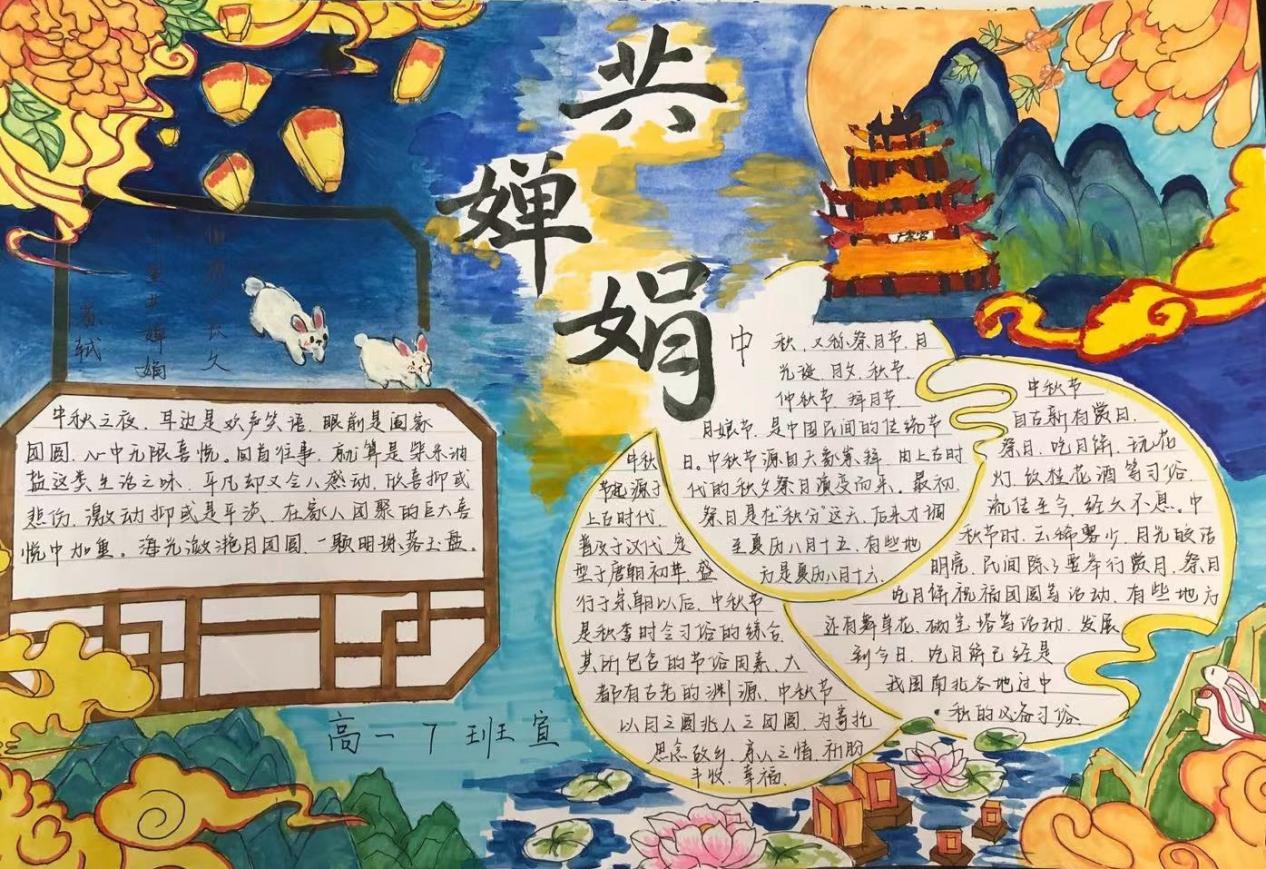 共
婵
娟
但愿人长久
千里共婵娟
苏轼
中秋之夜，耳边是欢声笑语，眼前是阖家
团圆，心中无限喜悦。回首往事，就算是柴米油
盐这类生活之味，平凡却又令人感动，欣喜抑或
悲伤，激动抑或是平淡，在家人团聚的巨大喜
悦中加重。海光潋滟月团圆，一颗明珠落玉盘。
高一7班宣
中秋，又称祭月节、月
光诞、月夕、秋节、
仲秋节、拜月节、
月娘节，是中国民间的传统节
日。中秋节源自天象崇拜，由上古时
代的秋夕祭月演变而来。最初
祭月是在“秋分”这天，后来才调
至夏历八月十五，有些地
方是夏历八月十六。
中秋
节起源于
上古时代，
普及于汉代，定
型于唐朝初年，盛
行于宋朝以后，中秋节
是秋季时令习俗的综合，
其所包含的节俗因素，大
都有古老的渊源，中秋节
以月之圆兆人之团圆，为寄托
思念故乡，亲人之情，祈盼
丰收、幸福，
中秋节
自古就有赏月、
祭月、吃月饼、玩花
灯、饮桂花酒等习俗，
流传至今，经久不息。中
秋节时，云稀雾少，月光皎洁
明亮，民间除了要举行赏月、祭月
吃月饼祝福团圆等活动，有些地方
还有舞草龙、砌宝塔等活动，发展
到今日，吃月饼已经是
我国南北各地过中
秋的必备习俗